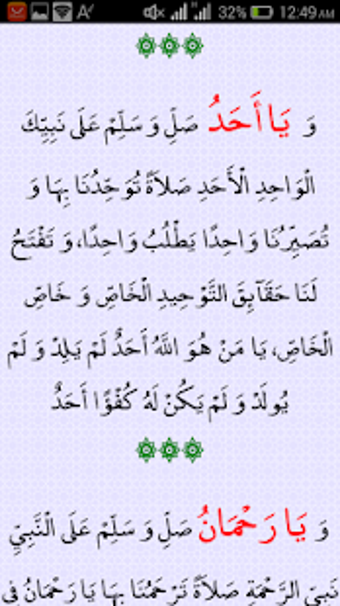 32% 12:49AM
وَ يَا أَحَدُ صَلِّ وَ سَلِّمْ عَلَى نَبِيِّكَ
الْوَاحِدِ الْأَحَدِ صَلَاةً تُوَحِّدُنَا بِهَا وَ
تُصَيِّرُنَا وَاحِدًا يَطْلُبُ وَاحِدًا، وَ تَفْتَحُ
لَنَا حَقَآيِقَ التَّوْحِيدِ الْخَاصِّ وَ خَاصِّ
الْخَاصِّ، يَا مَنْ هُوَ اللّٰهُ أَحَدٌ لَمْ يَلِدْ وَ لَمْ
يُولَدْ وَ لَمْ يَكُنْ لَهُ كُفْوًا أَحَدٌ
وَ يَا رَحْمَانُ صَلِّ وَ سَلِّمْ عَلَى النَّبِيِّ
نَبِيِّ الرَّحْمَةِ صَلَاةً تَرْحَمُنَا بِهَا يَا رَحْمَانُ فِي